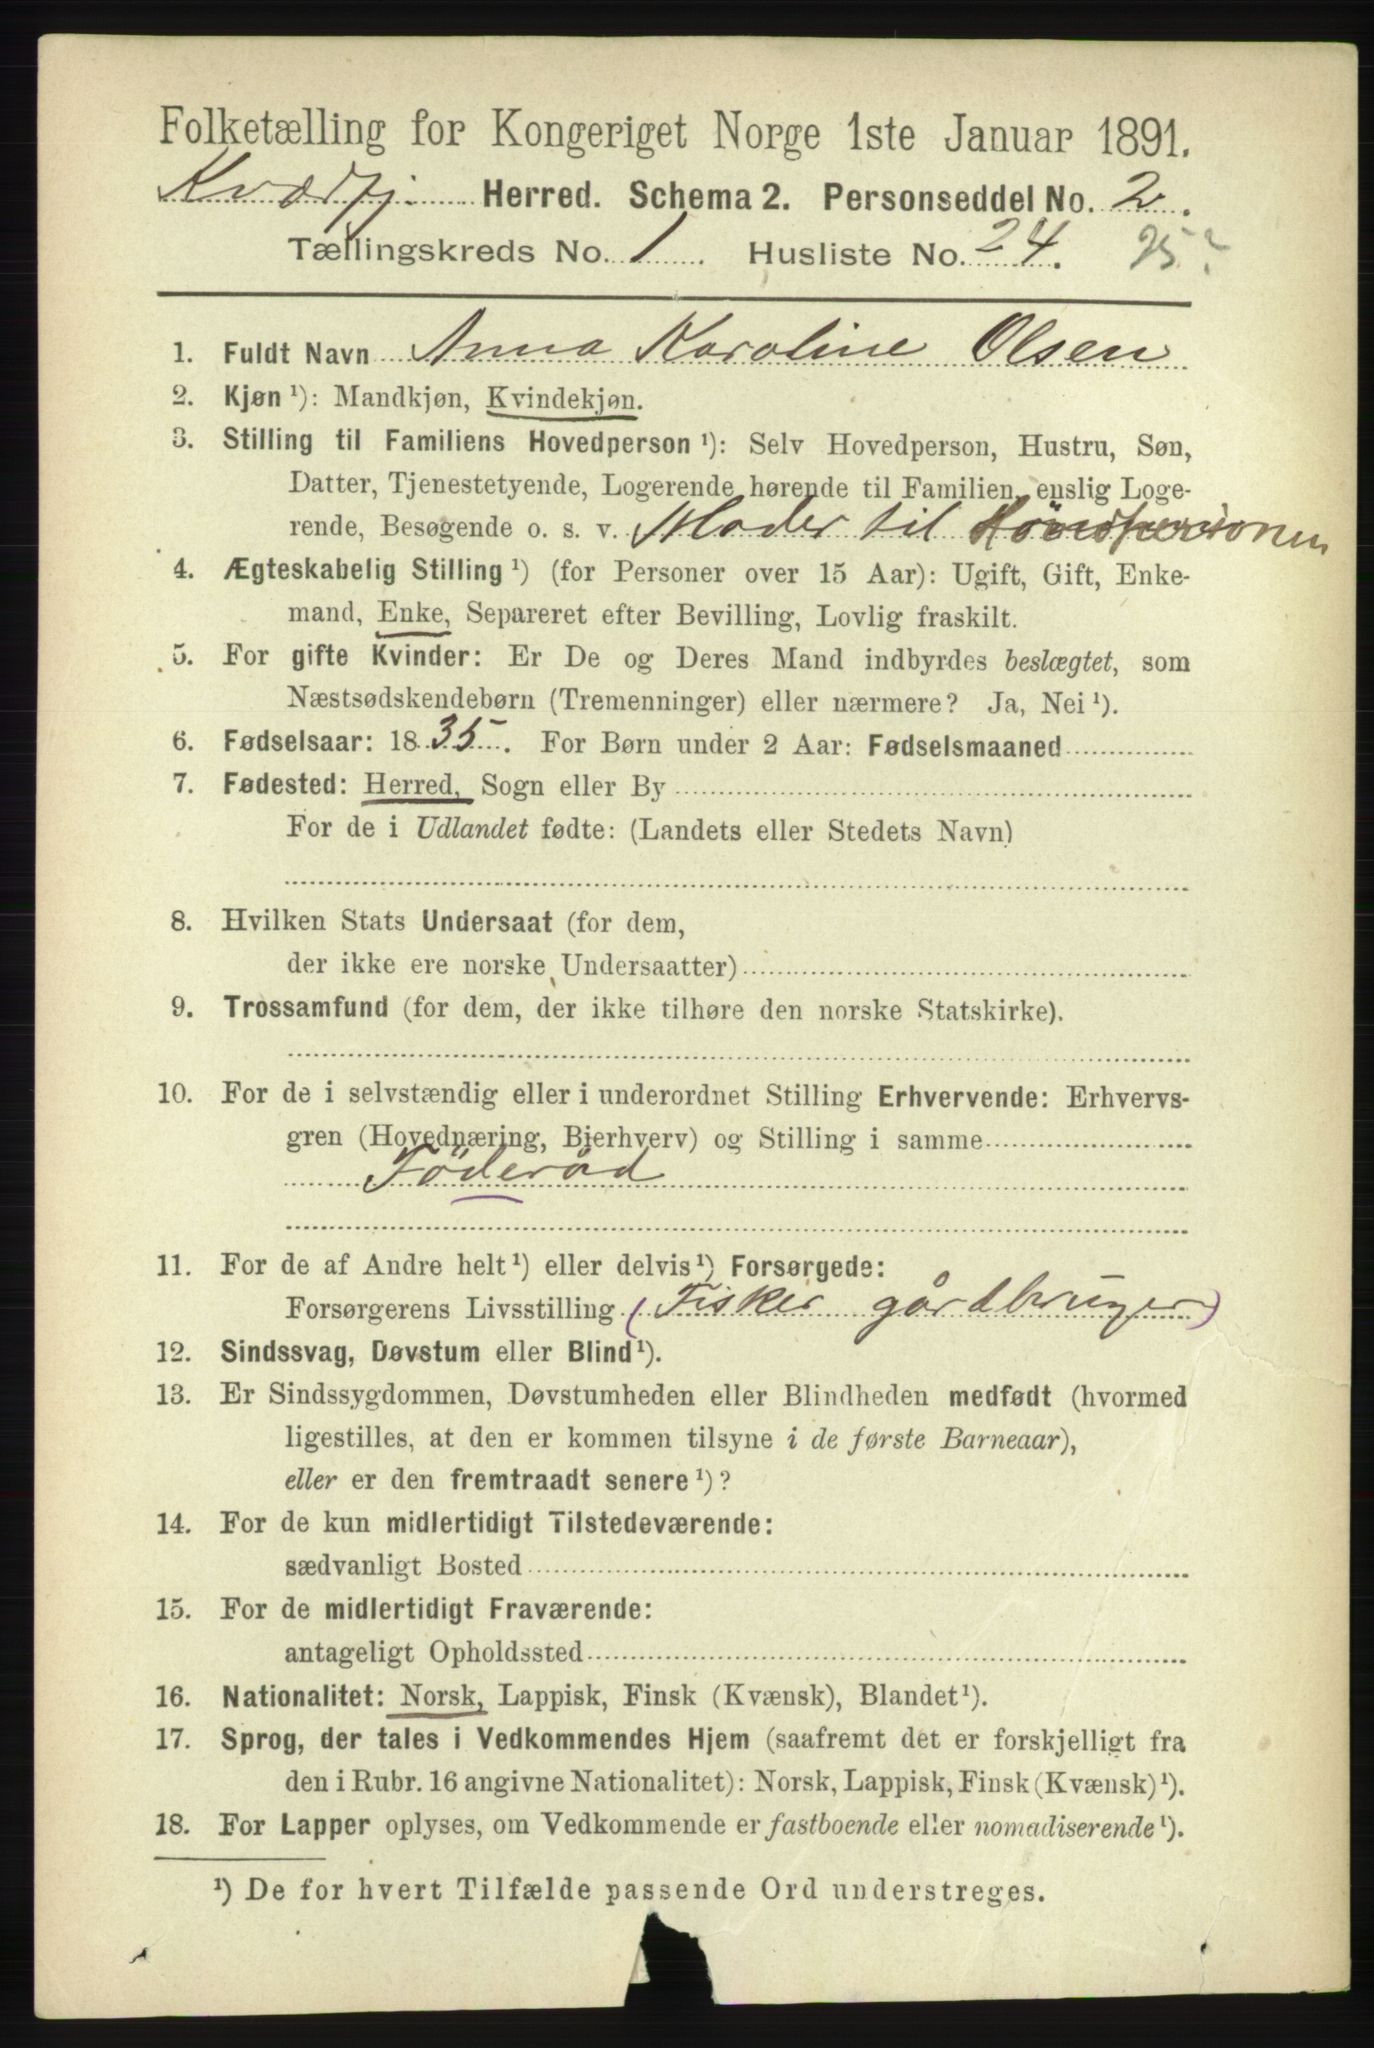 Folketælling for Kongeriget Norge 1ste Januar 1891.
Kvædfj. Herred. Schema 2. Personseddel No. 2.
Tællingskreds No. 1 Husliste No. 24. 25?
1. Fuldt Navn Anna Karoline Olsen
2. Kjøn ¹): Mandkjøn, Kvindekjøn.
3. Stilling til Familiens Hovedperson ¹): Selv Hovedperson, Hustru, Søn,
Datter, Tjenestetyende, Logerende hørende til Familien, enslig Loge-
rende, Besøgende o. s. v. Moder til Hovedpersonen
4. Ægteskabelig Stilling ¹) (for Personer over 15 Aar): Ugift, Gift, Enke-
mand, Enke, Separeret efter Bevilling, Lovlig fraskilt.
5. For gifte Kvinder: Er De og Deres Mand indbyrdes beslægtet, som
Næstsødskendebørn (Tremenninger) eller nærmere? Ja, Nei ¹).
6. Fødselsaar: 1835. For Børn under 2 Aar: Fødselsmaaned
7. Fødested: Herred, Sogn eller By
For de i Udlandet fødte: (Landets eller Stedets Navn)
8. Hvilken Stats Undersaat (for dem,
der ikke ere norske Undersaatter)
9. Trossamfund (for dem, der ikke tilhøre den norske Statskirke).
10. For de i selvstændig eller i underordnet Stilling Erhvervende: Erhvervs-
gren (Hovednæring, Bierhverv) og Stilling i samme
Föderåd
11. For de af Andre helt ¹) eller delvis ¹) Forsørgede:
Forsørgerens Livsstilling (Fisker gårdbruger)
12. Sindssvag, Døvstum eller Blind ¹).
13. Er Sindssygdommen, Døvstumheden eller Blindheden medfødt (hvormed
ligestilles, at den er kommen tilsyne i de første Barneaar),
eller er den fremtraadt senere ¹)?
14. For de kun midlertidigt Tilstedeværende:
sædvanligt Bosted
15. For de midlertidigt Fraværende:
antageligt Opholdssted
16. Nationalitet: Norsk, Lappisk, Finsk (Kvænsk), Blandet ¹).
17. Sprog, der tales i Vedkommendes Hjem (saafremt det er forskjelligt fra
den i Rubr. 16 angivne Nationalitet): Norsk, Lappisk, Finsk (Kvænsk) ¹).
18. For Lapper oplyses, om Vedkommende er fastboende eller nomadiserende ¹).
¹) De for hvert Tilfælde passende Ord understreges.